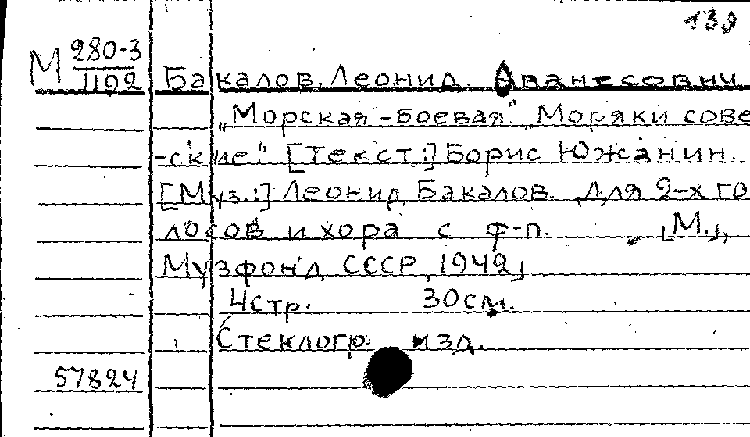 139
М 280-3
1102
Бакалов, Леонид Аванесович
„Морская-боевая". „Моряки сове
-ские". [Текст:] Борис Южанин.
[Муз.:] Леонид Бакалов. Для 2-х го
лосов и хора с ф-п. [М.],
Музфонд СССР, 1942]
4стр. 30см.
Стеклогр. изд.
57824